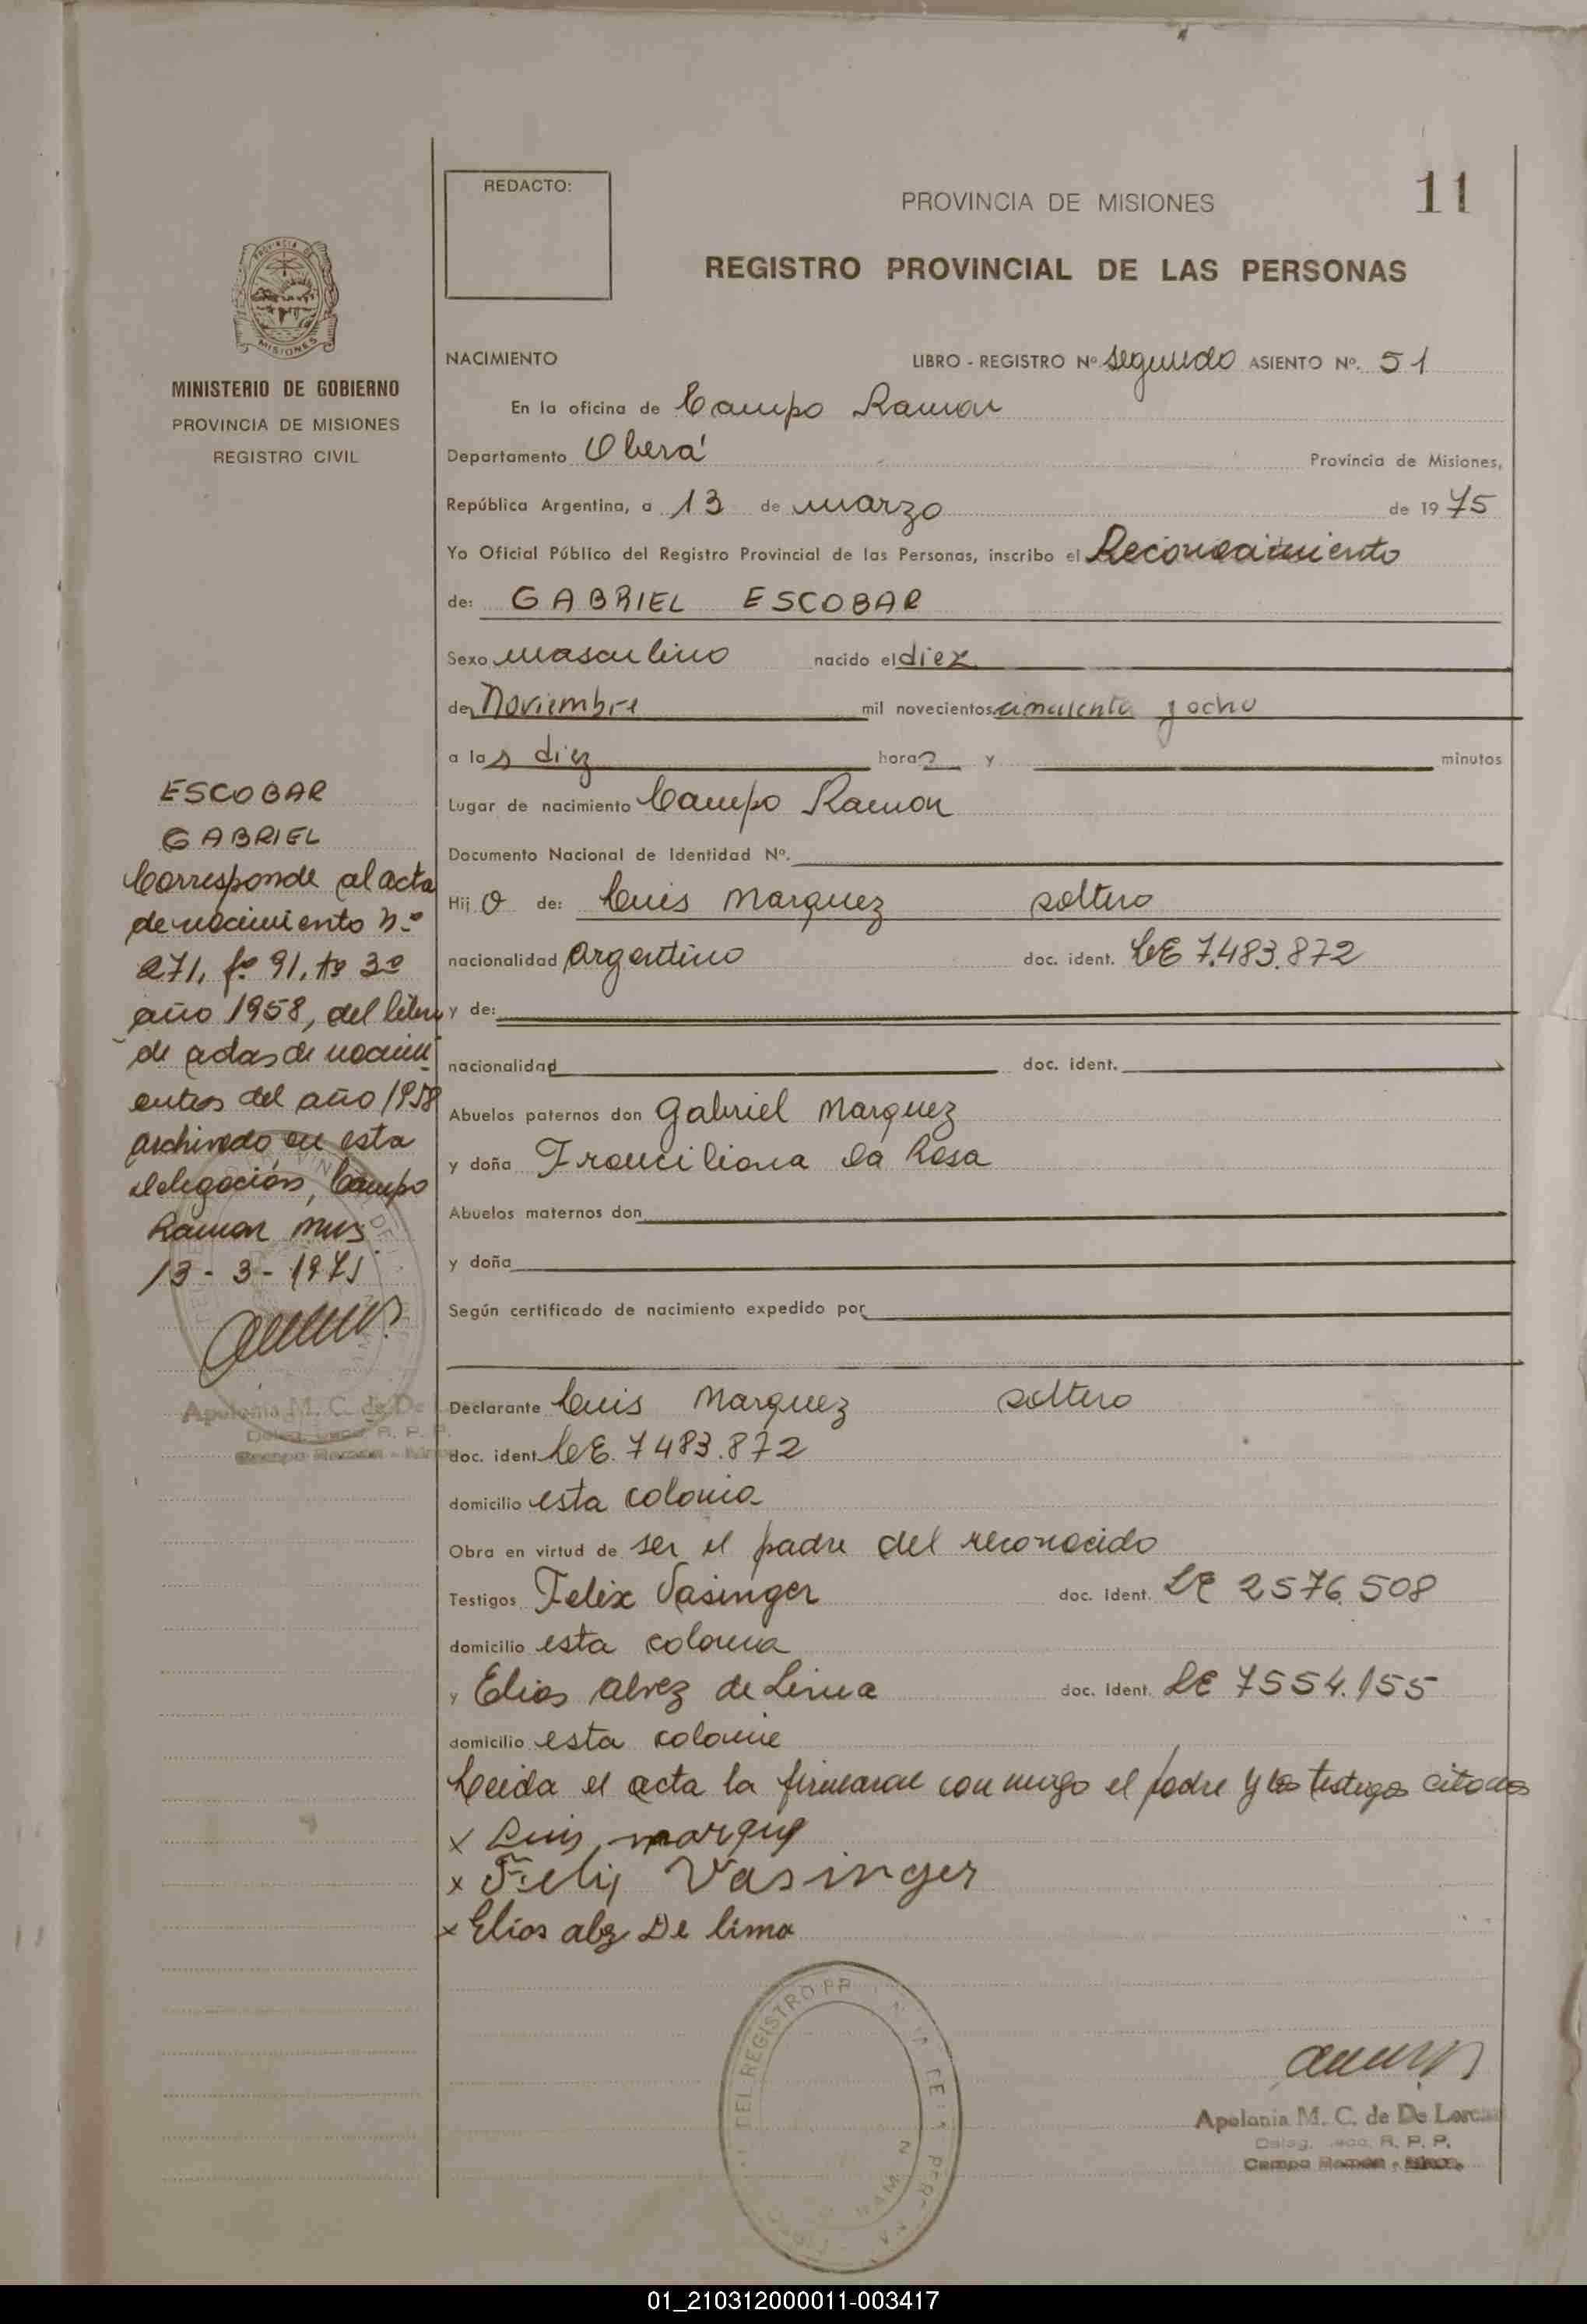 REDACTO:
PROVINCIA DE MISIONES
11
REGISTRO PROVINCIAL DE LAS PERSONAS
PROVINCIA DE
MISIONES
MINISTERIO DE GOBIERNO
PROVINCIA DE MISIONES
REGISTRO CIVIL
NACIMIENTO LIBRO - REGISTRO Nº segundo ASIENTO Nº. 51
En la oficina de Campo Ramon
Departamento Oberá Provincia de Misiones,
República Argentina, a 13 de marzo de 1975
Yo Oficial Público del Registro Provincial de las Personas, inscribo el Reconocimiento
de: GABRIEL ESCOBAR
Sexo masculino nacido el diez
de Noviembre mil novecientos cincuenta y ocho
a las diez horas y minutos
Lugar de nacimiento Campo Ramon
Documento Nacional de Identidad Nº.
Hijo de: Luis Marquez soltero
nacionalidad Argentino doc. ident. LE 7.483.872
y de:
nacionalidad doc. ident.
Abuelos paternos don Gabriel Marquez
y doña Franciliana da Rosa
Abuelos maternos don
y doña
Según certificado de nacimiento expedido por
Declarante Luis Marquez soltero
doc. ident LE. 7483.872
domicilio esta colonia
Obra en virtud de ser el padre del reconocido
Testigos Felix Vasinger doc. Ident. LE 2576.508
domicilio esta colonia
y Elias Alvez de Lima doc. Ident. LE 7554.155
domicilio esta colonia
Leida el acta la firmaran conmigo el padre y los testigos citados
x Luis marquez
x Felix Vasinger
x Elias alz De lima
ESCOBAR
GABRIEL
Corresponde al acta
de nacimiento nº
271, fº 91, tº 3º
año 1958, del libro
de actas de nacimi
entos del año 1958
archivado en esta
delegación, Campo
Ramon Mnes
13 - 3 - 1975
Apolonia M. C. de De
R. P. P.
Campo Ramón - Mnes.
DEL REGISTRO
Apolonia M. C. de De Lorenzo
Deleg. R. P. P.
Campo Ramón - Mnes.
01_210312000011-003417